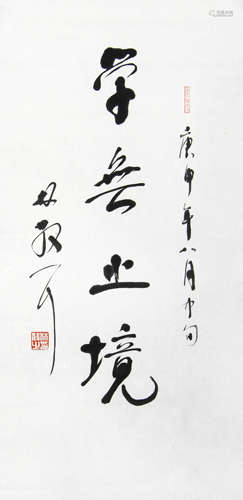 庚申年八月中旬
学無止境
林散之